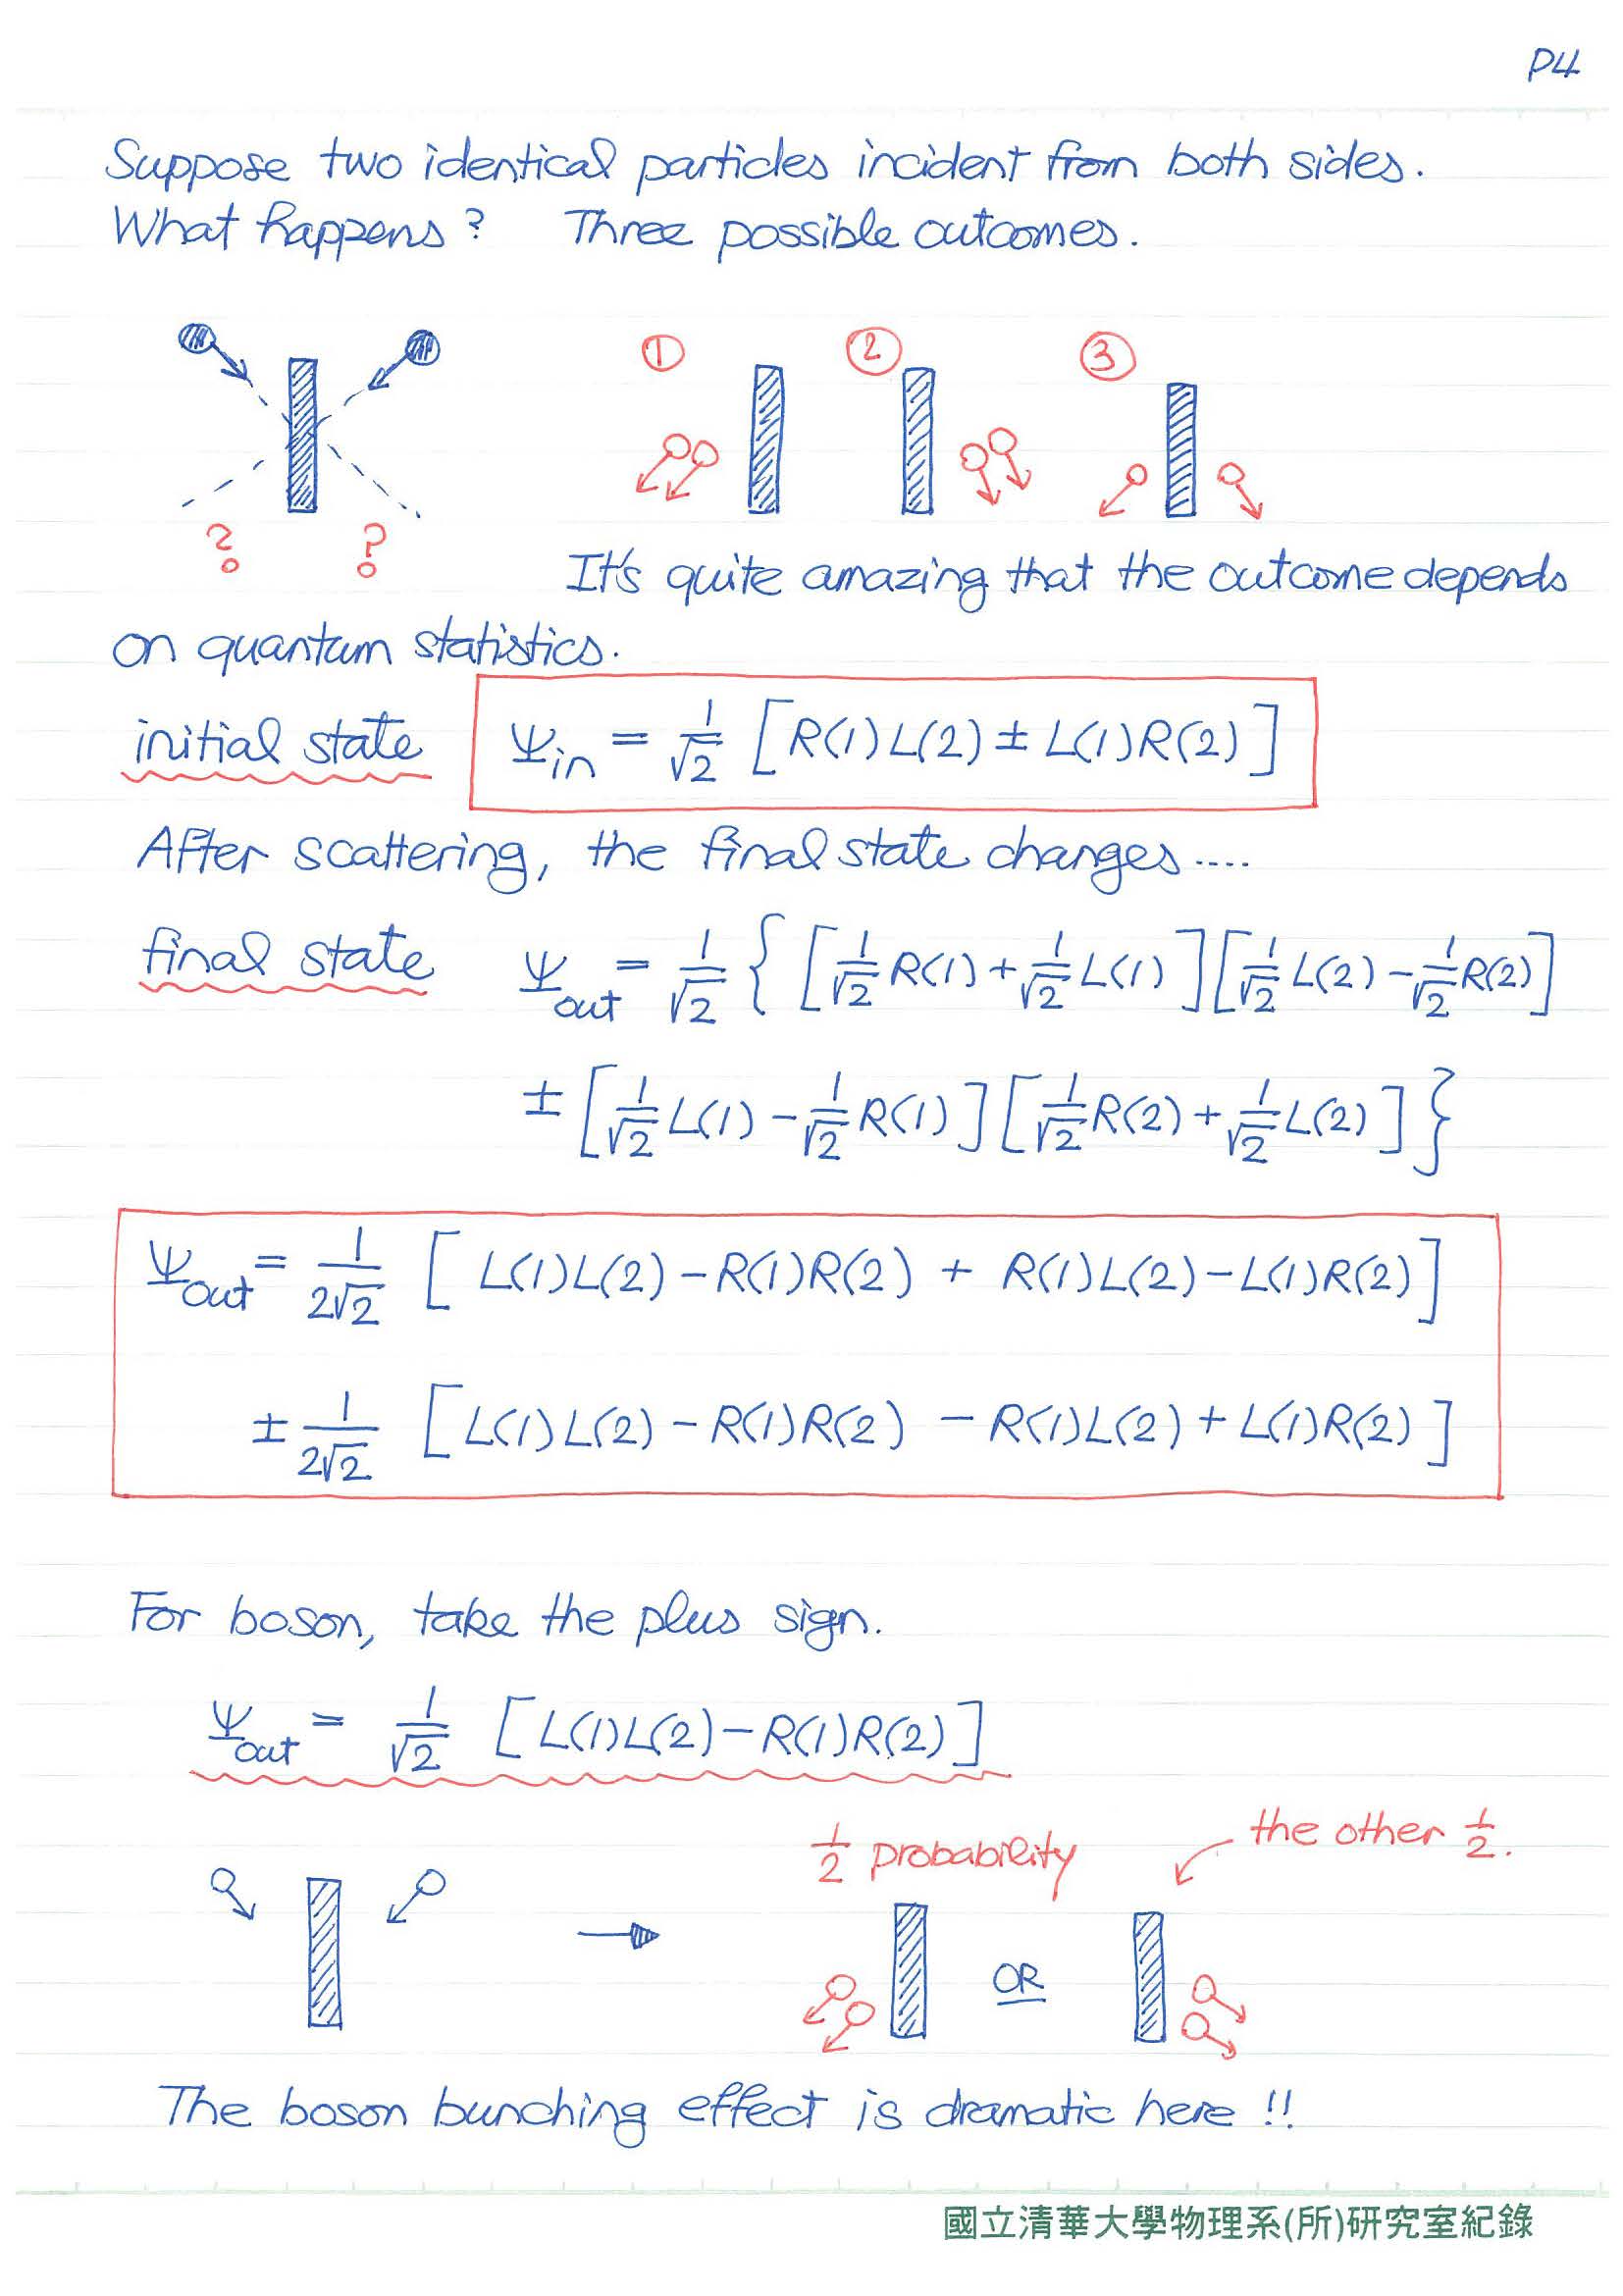 P4
Suppose two identical particles incident from both sides.
What happens? Three possible outcomes.
① ② ③
? ?
It's quite amazing that the outcome depends
on quantum statistics.
initial state Ψin = 1/√2 [R(1)L(2) ± L(1)R(2)]
After scattering, the final state changes....
final state Ψout = 1/√2 { [1/√2 R(1) + 1/√2 L(1)][1/√2 L(2) - 1/√2 R(2)]
± [1/√2 L(1) - 1/√2 R(1)][1/√2 R(2) + 1/√2 L(2)] }
Ψout = 1/2√2 [L(1)L(2) - R(1)R(2) + R(1)L(2) - L(1)R(2)]
± 1/2√2 [L(1)L(2) - R(1)R(2) - R(1)L(2) + L(1)R(2)]
For boson, take the plus sign.
Ψout = 1/√2 [L(1)L(2) - R(1)R(2)]
1/2 probability the other 1/2.
OR
The boson bunching effect is dramatic here!!
國立清華大學物理系(所)研究室紀錄